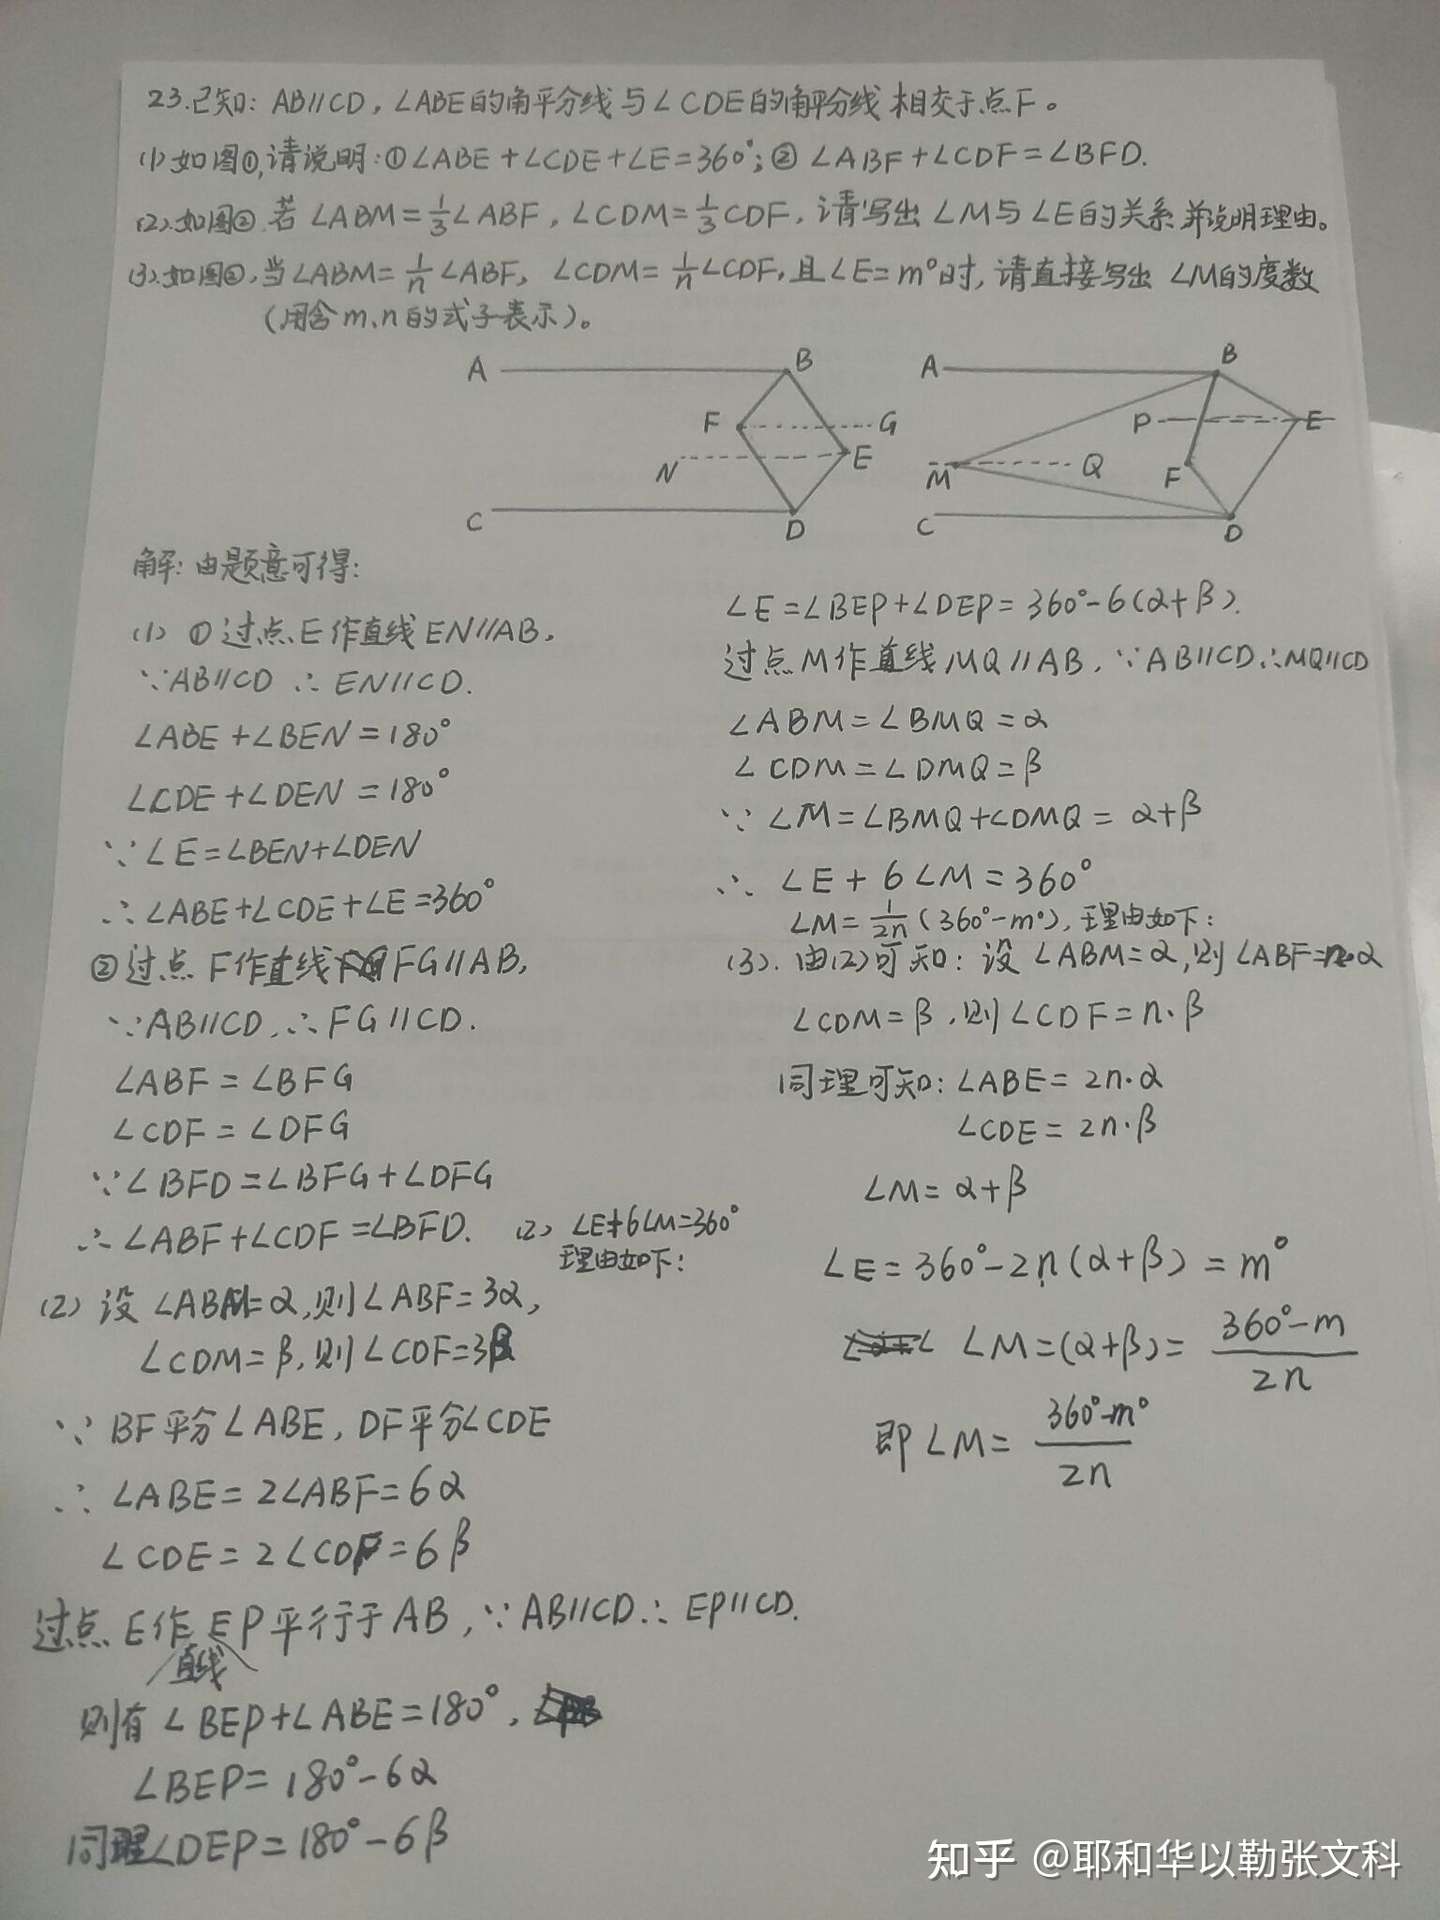 23.已知: AB//CD, ∠ABE的角平分线与∠CDE的角平分线相交于点F。
(1)如图①,请说明:①∠ABE+∠CDE+∠E=360°;② ∠ABF+∠CDF=∠BFD.
(2).如图②.若∠ABM=1/3∠ABF, ∠CDM=1/3CDF, 请写出∠M与∠E的关系,并说明理由。
(3).如图②,当∠ABM=1/n∠ABF, ∠CDM=1/n∠CDF,且∠E=m°时,请直接写出∠M的度数
(用含m、n的式子表示)。
A B F G N E C D
A B P E M Q F C D
解: 由题意可得:
(1) ①过点E作直线EN//AB,
∵AB//CD ∴EN//CD.
∠ABE+∠BEN=180°
∠CDE+∠DEN=180°
∵∠E=∠BEN+∠DEN
∴∠ABE+∠CDE+∠E=360°
②过点F作直线FG//AB,
∵AB//CD,∴FG//CD.
∠ABF=∠BFG
∠CDF=∠DFG
∵∠BFD=∠BFG+∠DFG
∴∠ABF+∠CDF=∠BFD.
(2) ∠E+6∠M=360°
理由如下:
(2) 设∠ABM=α,则∠ABF=3α,
∠CDM=β,则∠CDF=3β
∵ BF平分∠ABE, DF平分∠CDE
∴ ∠ABE=2∠ABF=6α
∠CDE=2∠CDF=6β
过点E作直线EP平行于AB,∵AB//CD∴EP//CD.
则有∠BEP+∠ABE=180°,
∠BEP=180°-6α
同理∠DEP=180°-6β
∠E=∠BEP+∠DEP=360°-6(α+β).
过点M作直线MQ//AB,∵AB//CD∴MQ//CD
∠ABM=∠BMQ=α
∠CDM=∠DMQ=β
∵ ∠M=∠BMQ+∠DMQ=α+β
∴ ∠E+6∠M=360°
∠M=1/2n(360°-m°),理由如下:
(3). 由(2)可知: 设∠ABM=α,则∠ABF=n·α
∠CDM=β,则∠CDF=n·β
同理可知: ∠ABE=2n·α
∠CDE=2n·β
∠M=α+β
∠E=360°-2n(α+β)=m°
∠M=(α+β)=360°-m/2n
即∠M=360°-m°/2n
知乎 @耶和华以勒张文科